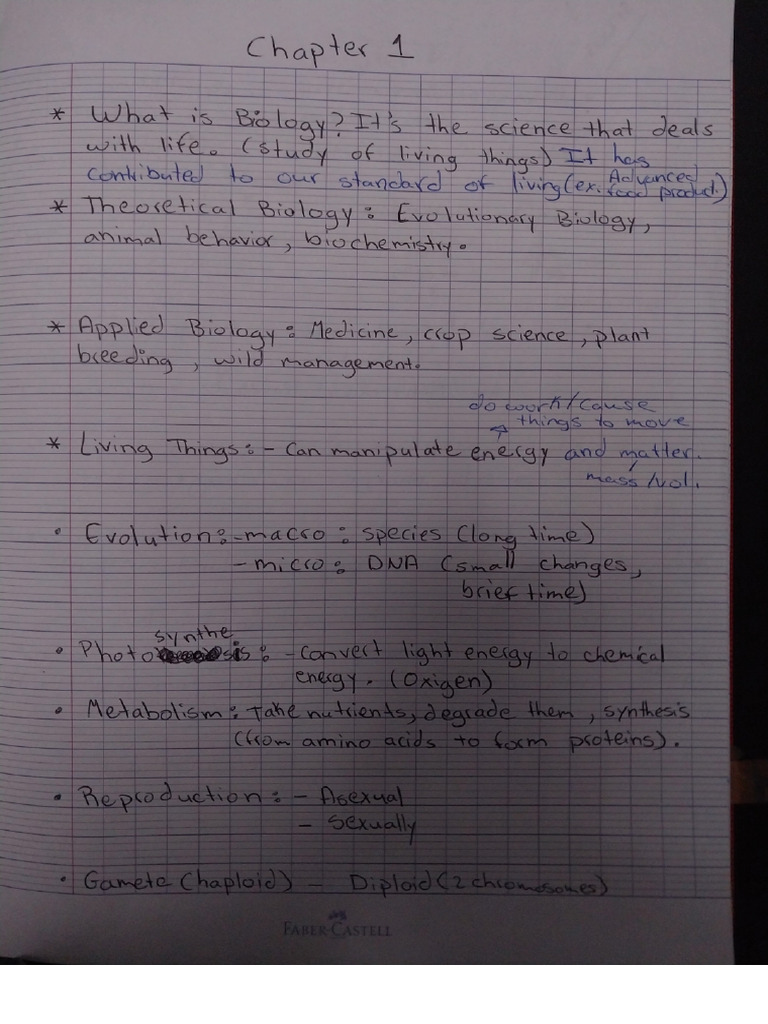 Chapter 1
* What is Biology? It's the science that deals
with life. (Study of living things) It has
contributed to our standard of living (ex. Advanced food product.)
* Theoretical Biology: Evolutionary Biology,
animal behavior, biochemistry.
* Applied Biology: Medicine, crop science, plant
breeding, wild management.
do work/cause
things to move
* Living Things: - Can manipulate energy and matter.
mass/vol.
• Evolution: - macro: species (long time)
- micro: DNA (small changes,
brief time)
synthe
• Photo sis: - convert light energy to chemical
energy. (Oxigen)
• Metabolism: Take nutrients, degrade them, synthesis
(from amino acids to form proteins).
• Reproduction: - Asexual
- Sexually
• Gamete (haploid) - Diploid (2 chromosomes)
FABER-CASTELL